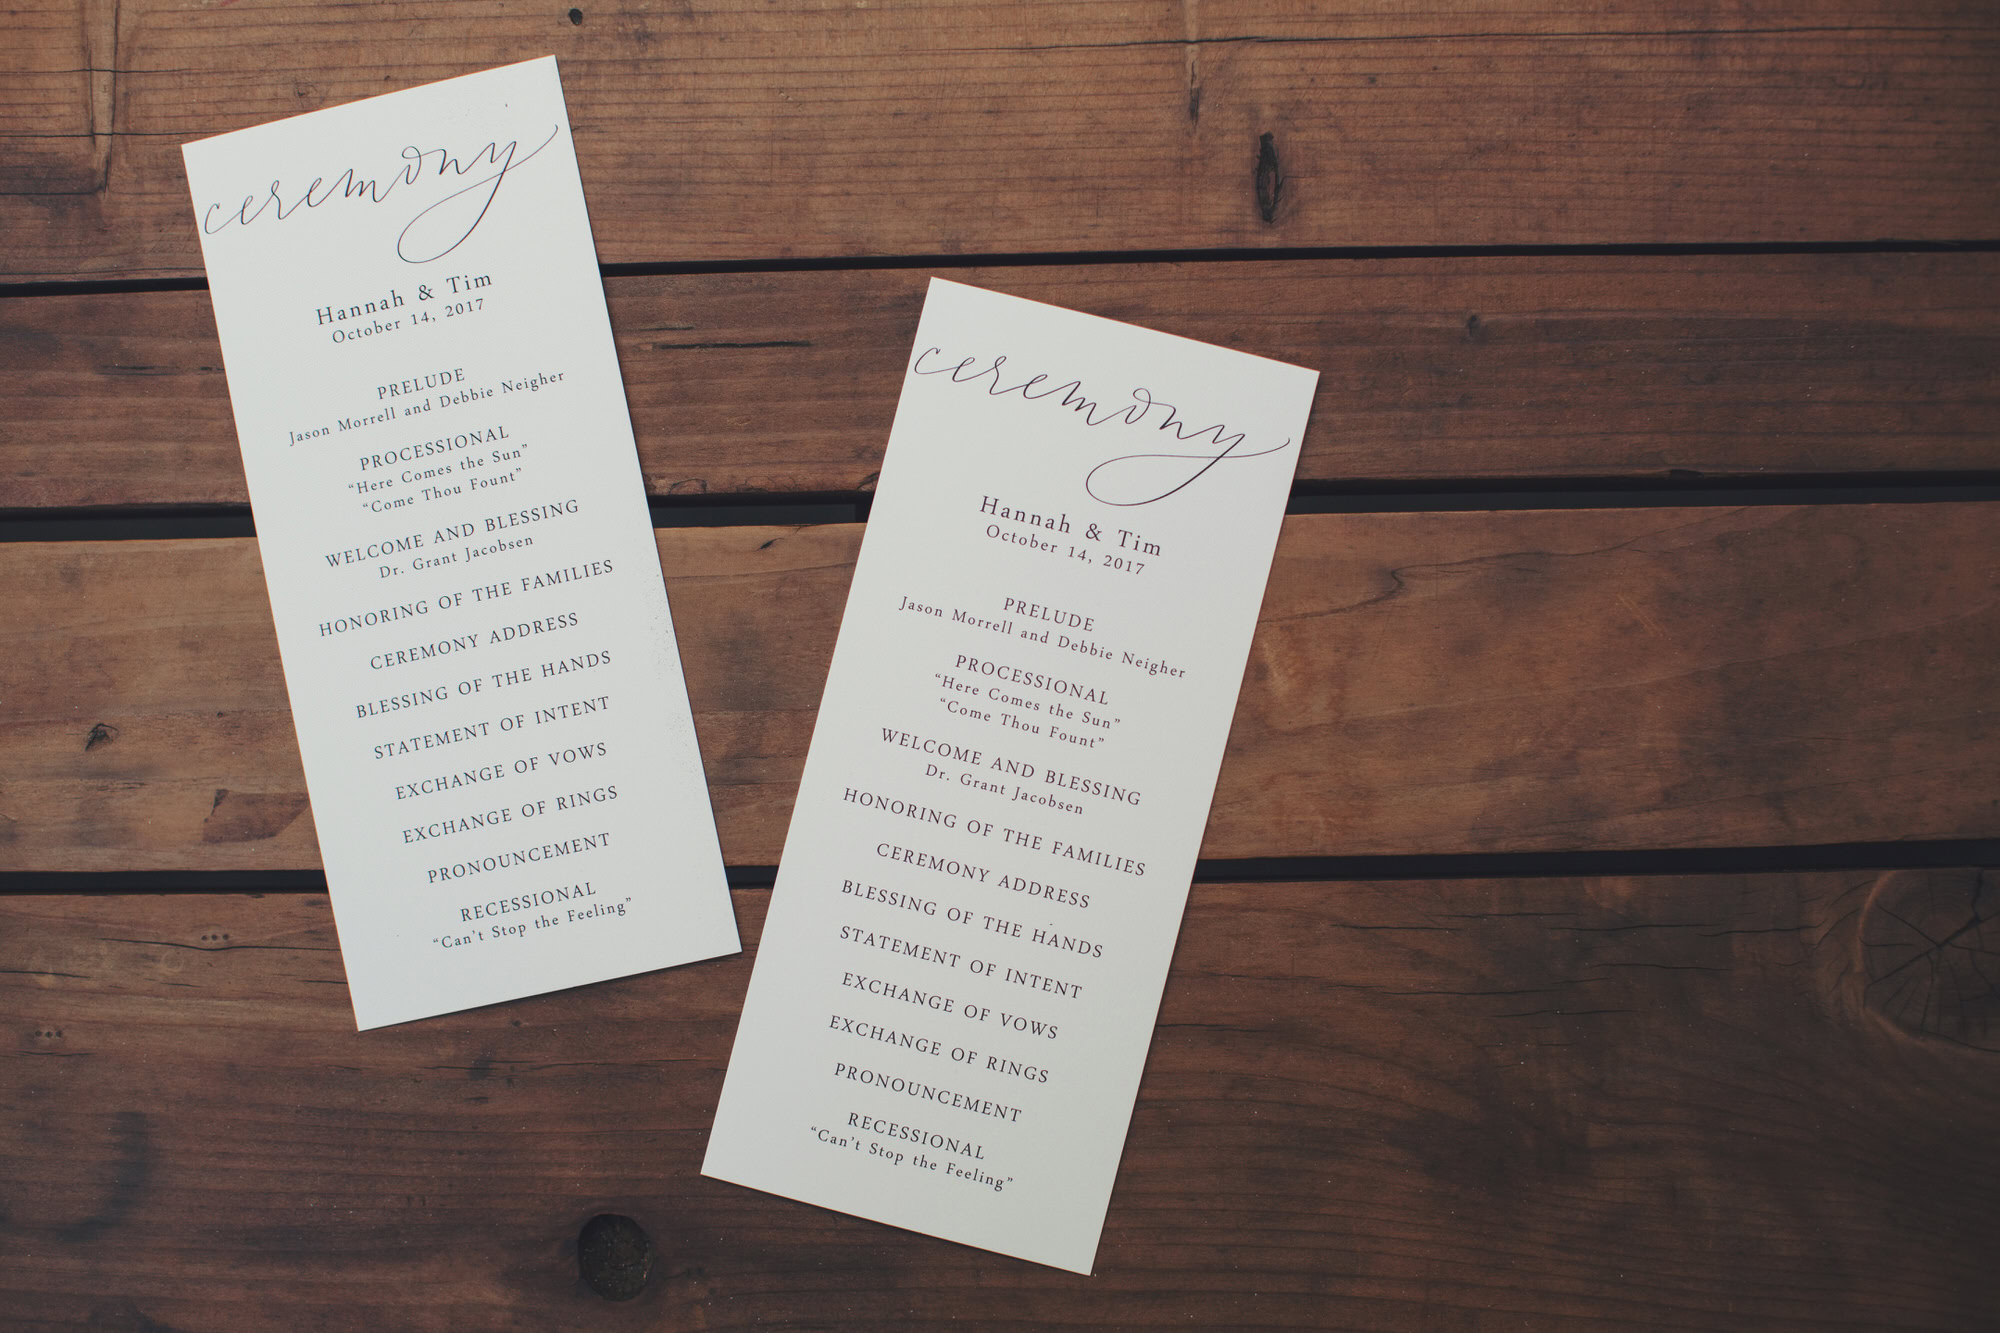 ceremony
Hannah & Tim
October 14, 2017
PRELUDE
Jason Morrell and Debbie Neigher
PROCESSIONAL
“Here Comes the Sun”
“Come Thou Fount”
WELCOME AND BLESSING
Dr. Grant Jacobsen
HONORING OF THE FAMILIES
CEREMONY ADDRESS
BLESSING OF THE HANDS
STATEMENT OF INTENT
EXCHANGE OF VOWS
EXCHANGE OF RINGS
PRONOUNCEMENT
RECESSIONAL
“Can’t Stop the Feeling”
ceremony
Hannah & Tim
October 14, 2017
PRELUDE
Jason Morrell and Debbie Neigher
PROCESSIONAL
“Here Comes the Sun”
“Come Thou Fount”
WELCOME AND BLESSING
Dr. Grant Jacobsen
HONORING OF THE FAMILIES
CEREMONY ADDRESS
BLESSING OF THE HANDS
STATEMENT OF INTENT
EXCHANGE OF VOWS
EXCHANGE OF RINGS
PRONOUNCEMENT
RECESSIONAL
“Can’t Stop the Feeling”